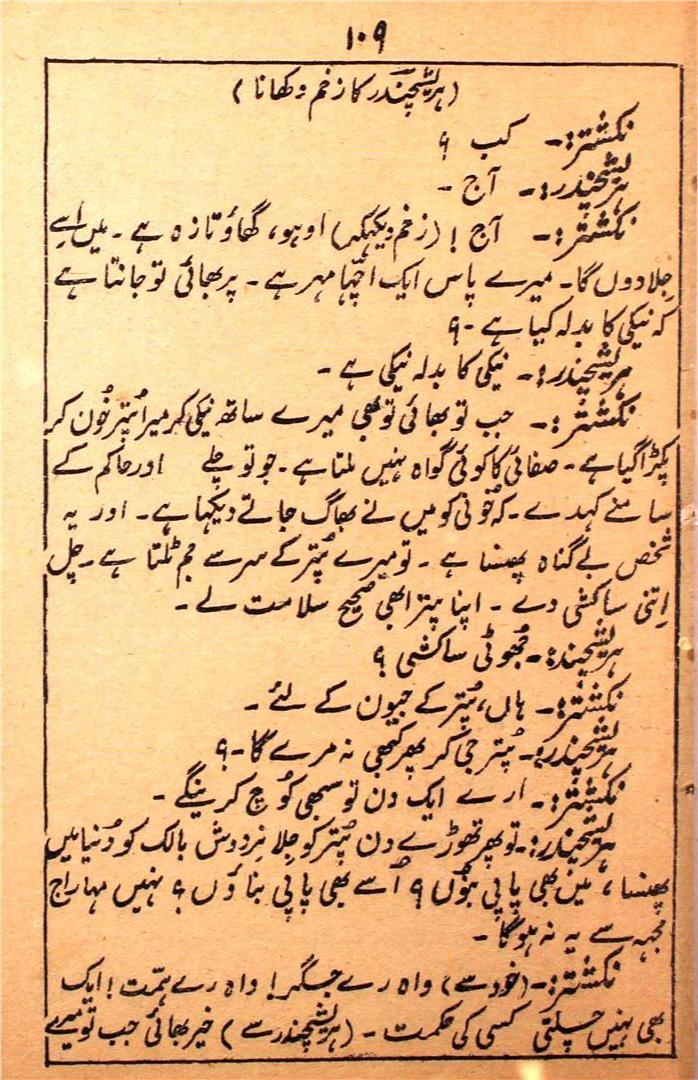 ۱۰۹
(ہریشچندر کا زخم دکھانا)
نکشتر:۔ کب ؟
ہریشچندر:۔ آج ۔
نکشتر:۔ آج ! (زخم دیکھکر) اوہو، گھاؤ تازہ ہے ۔ میں اسے
جِلا دوں گا۔ میرے پاس ایک اچھا مہر ہے ۔ پر بھائی تو جانتا ہے
کہ نیکی کا بدلہ کیا ہے ۔؟
ہریشچندر:۔ نیکی کا بدلہ نیکی ہے ۔
نکشتر:۔ جب تو بھائی تو بھی میرے ساتھ نیکی کر میرا پُتر خُون کر
پکڑا گیا ہے ۔ صفائی کا کوئی گواہ نہیں ملتا ہے ۔ جو تو چلے اور حاکم کے
سامنے کہدے ۔ کہ خُونی کو میں نے بھاگ جاتے دیکھا ہے ۔ اور یہ
شخص بے گناہ پھنسا ہے ۔ تو میرے پُتر کے سر سے جم ٹلتا ہے ۔ چل
اِتنی ساکشی دے ۔ اپنا پتر ابھی صحیح سلامت لے ۔
ہریشچندر:۔ جُھوٹی ساکشی ؟
نکشتر:۔ ہاں، پُتر کے جیون کے لئے ۔
ہریشچندر:۔ پُتر جی کر پھر کبھی نہ مرے گا ۔؟
نکشتر:۔ ارے ایک دن تو سبھی کُوچ کرینگے ۔
ہریشچندر:۔ تو پھر تھوڑے دن پُتر کو جِلا نردوش بالک کو دُنیا میں
پھنسا، میں بھی پاپی ہوُں ؟ اُسے بھی پاپی بناؤں ؟ نہیں مہاراج
مجھہ سے یہ نہ ہو گا ۔
نکشتر:۔ (خود سے) واہ رے جگر! واہ رے ہمّت! ایک
بھی نہیں چلتی کسی کی حکمت ۔ (ہریشچندر سے) خیر بھائی جب تو میرے